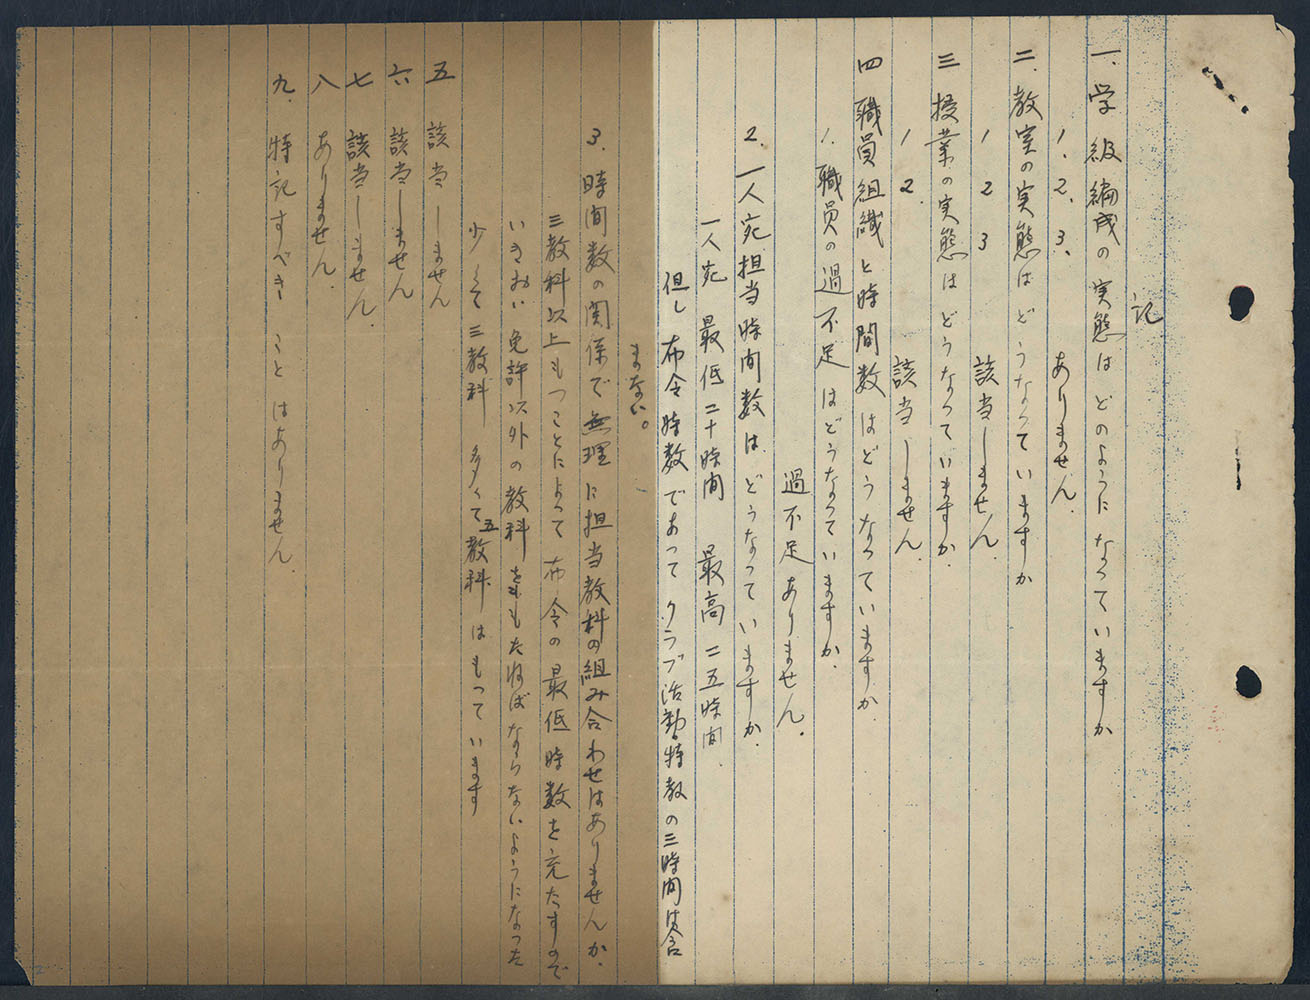 記
一、学級編成の実態はどのようになっていますか
1、2、3、 ありません
二、教室の実態はどうなっていますか
1 2 3 該当しません
三 授業の実態はどうなっていますか
1 2 該当しません
四 職員組織と時間数はどうなっていますか
1、職員の過不足はどうなっていますか
過不足ありません
2、一人宛担当時間数はどうなっていますか
一人宛 最低二十時間 最高二五時間
但し布令時数であってクラブ活動・特教の三時間は含
まない。
3、時間数の関係で無理に担当教科の組み合わせはありませんか
三教科以上もつことによって布令の最低時数を充たすので
いきおい免許以外の教科をもたねばならないようになった
少くて三教科 多くて五教科はもっています
五 該当しません
六 該当しません
七 該当しません
八 ありません
九、特記すべきことはありません